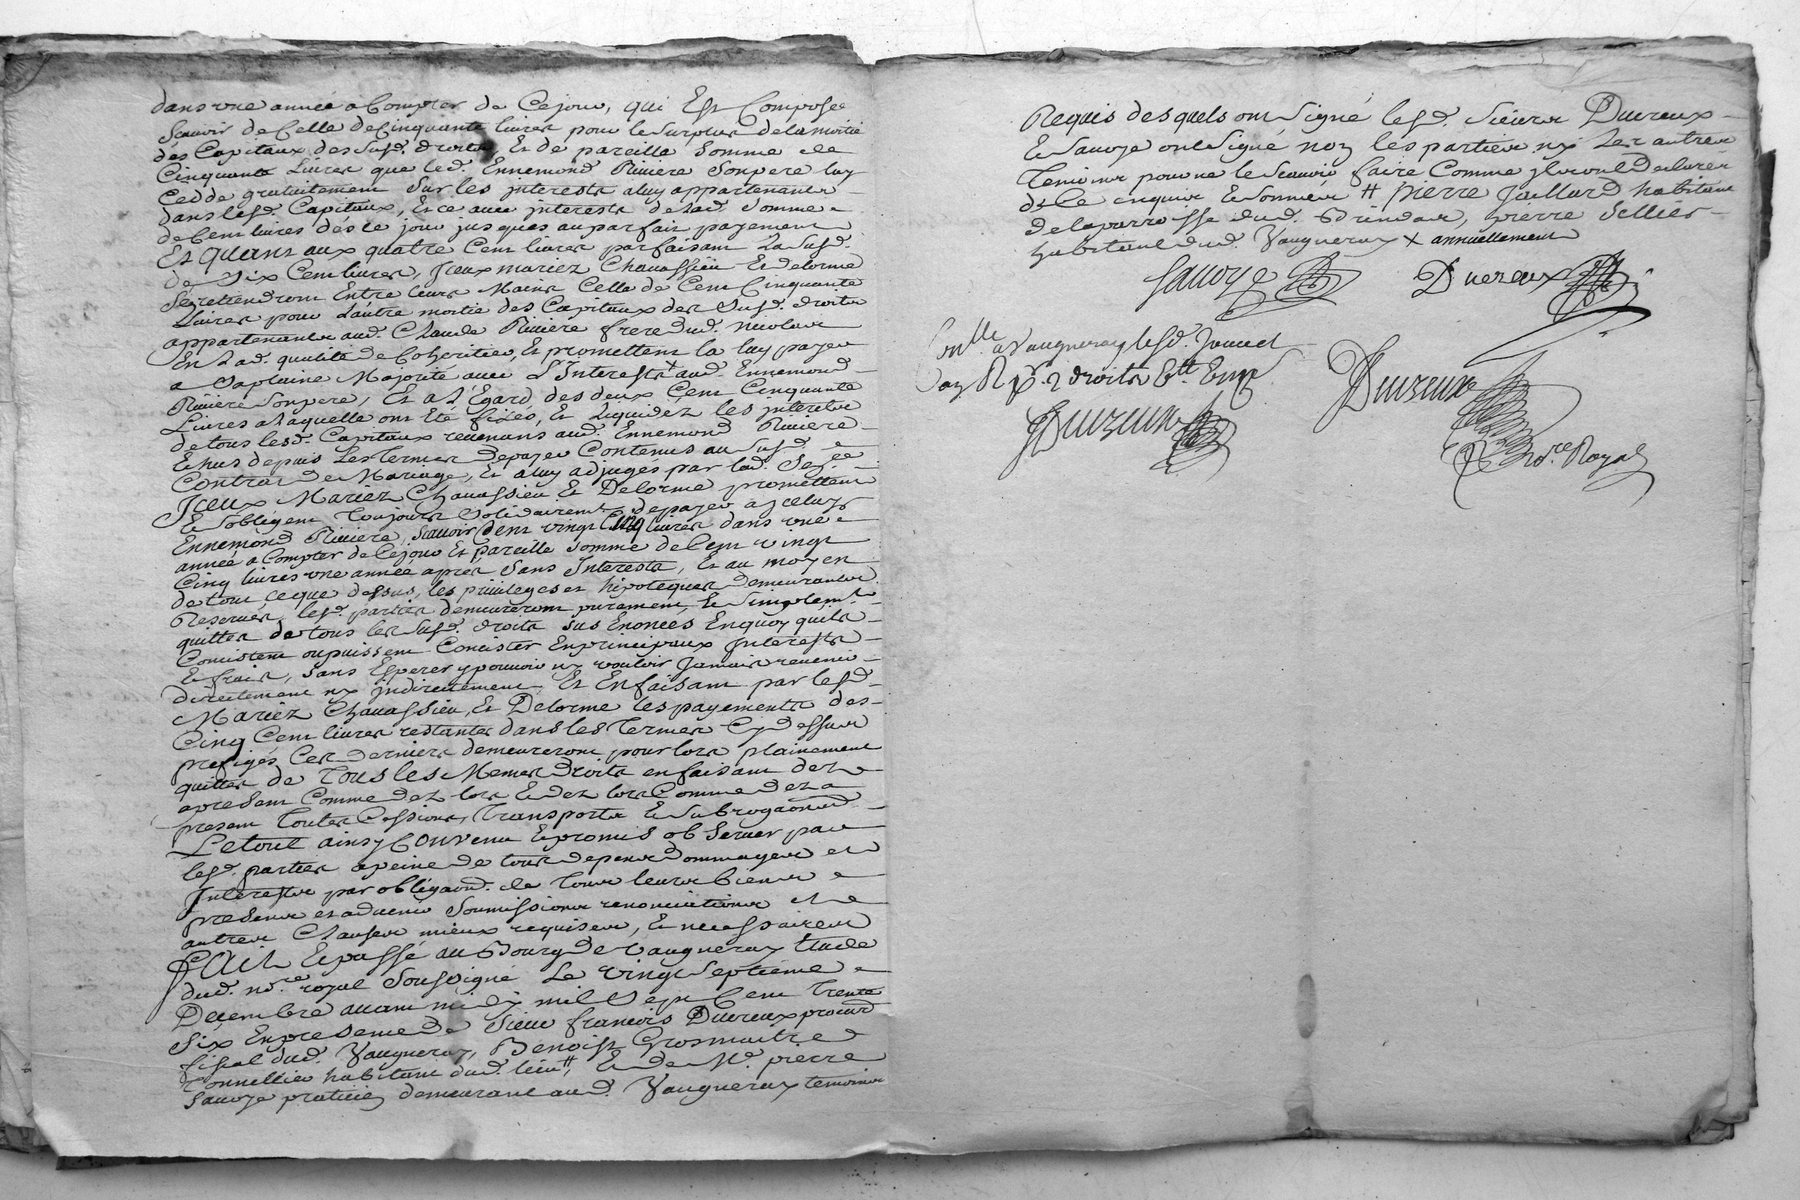 dans vne année a Compter de Cejour, qui Est Composée
Scauoir de Celle de Cinquante liures pour le Surplus de la moitié
des Capitaux des Susd. droits, Et de pareille Somme de
Cinquante Liures que led. Ennemond Riuiere Son pere luy
Cedde gratuitement Sur les jnterests a luy appartenants
dans lesd. Capitaux, Et ce auec jnterests de lad. Somme
de Cent liures dès le jour jusques au parfait payement
Et quant aux quatre Cent liures parfaisant La Susd.
de Six Cent liures, jceux mariez Chauassieu Et delorme
Se retiendront Entre leurs Mains Celle de Cent Cinquante
Liures pour L'autre moitié des Capitaux des Susd. droits
appartenants aud. Claude Riuiere frere dud. nicolas
En Lad. qualité de Coheritier, Et promettent la luy payer
a Saplaine Majorité auec L'Interests aud. Ennemond
Riuiere Son pere, Et a L'Egard des deux Cent Cinquante
Liures a laquelle ont Eté fixéés, Et Liquidez les jnterets
de tous lesd. Capitaux reuenans aud. Ennemond Riuiere
Echus depuis Les termes depayer Contenus au Susd.
Contrat de Mariage, Et a luy adjugés par lad. Sen.ce
Jceux Mariez Chauassieu Et Delorme promettent
Et S'obligent Toujours Solidairement de payer a jceluy
Ennemond Riuiere, Scauoir Cent vingt Cinq liures dans vne
année a Compter de Cejour Et pareille Somme de Cent vingt
Cinq liures vne année apres Sans Interests, Et au moyen
de tout ce que dessus, les priuileges et hipoteques demeurantes
Reseruées, lesd. parties demeureront purement Et Simplem.t
quittes de tous les Susd. droits Sus Enonces En quoy quils
Concistent ou puissent Concister En principaux Interests
Et frais, Sans Esperer y pouuoir ny vouloir Jamais reuenir
directement ny jndirectement, Et En faisant par lesd.
Mariez Chauassieu, Et Delorme les payements des
Cinq Cent liures restantes dans les Termes Cy dessus
prefigés Ces derniers demeureront pour lors plainement
quittes de Tous les Memes droits en faisant dez
apresent Comme dez lors Et dez lors Comme dez a
present Toutes Cessions, Transports Et Subrogaõns
Le tout ainsy Conuenu Et promis obseruer par
lesd. parties a peine de tous depens Dommages et
Interests par obligaõn de Tous leurs biens
presens et aduenir Soumissions renonciations et
autres Clauses mieux requises, Et necessaires
FAit Et passé au Bourg de Vaugneray Etude
dud. no.re royal Soussigné Le vingt Septiéme
Decembre auant midy mil Sept Cent Trente
Six En presence de Sieur francois Ducreux procur.
fiscal dud. Vaugneray, Benoist Grosmaitre
Tonnellier habitant dud. lieu #, Et de M.e pierre
Sauoye praticien demeurant aud. Vaugneray temoins
Requis desquels ont Signé lesd. Sieurs Ducreux
Et Sauoye ont Signé non les parties ny Les autres
Temoins pour ne le Scauoir faire Comme jls ont declaré
de Ce enquis Et Sommés # pierre Jaillard habitant
de la parroisse dud. Brindas, pierre Sellier
habitant dud. Vaugneray X annuellement
Sauoye Ducreux
Con.lle a Vaugneray lesd. Jour et
an R p.r 2 droits
Ducreux
Ducreux
No.re Royal